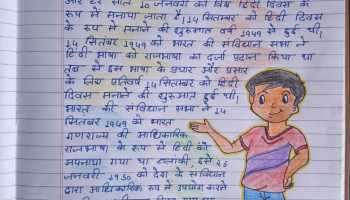 और हर साल 10 जनवरी को विश्व हिंदी दिवस के
रूप में मनाया जाता है। 14 सितंबर को हिंदी दिवस
के रूप में मनाने की शुरुआत वर्ष 1949 से हुई थी।
14 सितंबर 1949 को भारत की संविधान सभा ने
हिंदी भाषा को राजभाषा का दर्जा प्रदान किया था
तब से इस भाषा के प्रचार और प्रसार
के लिए प्रतिवर्ष 14 सितंबर को हिंदी
दिवस मनाने की शुरुआत हुई थी।
भारत की संविधान सभा ने 14
सितंबर 1949 को भारत
गणराज्य की आधिकारिक
राजभाषा के रूप में हिंदी को
अपनाया गया था हालांकि, इसे 26
जनवरी 1950 को देश के संविधान
द्वारा आधिकारिक रूप में उपयोग करने
किया गया था